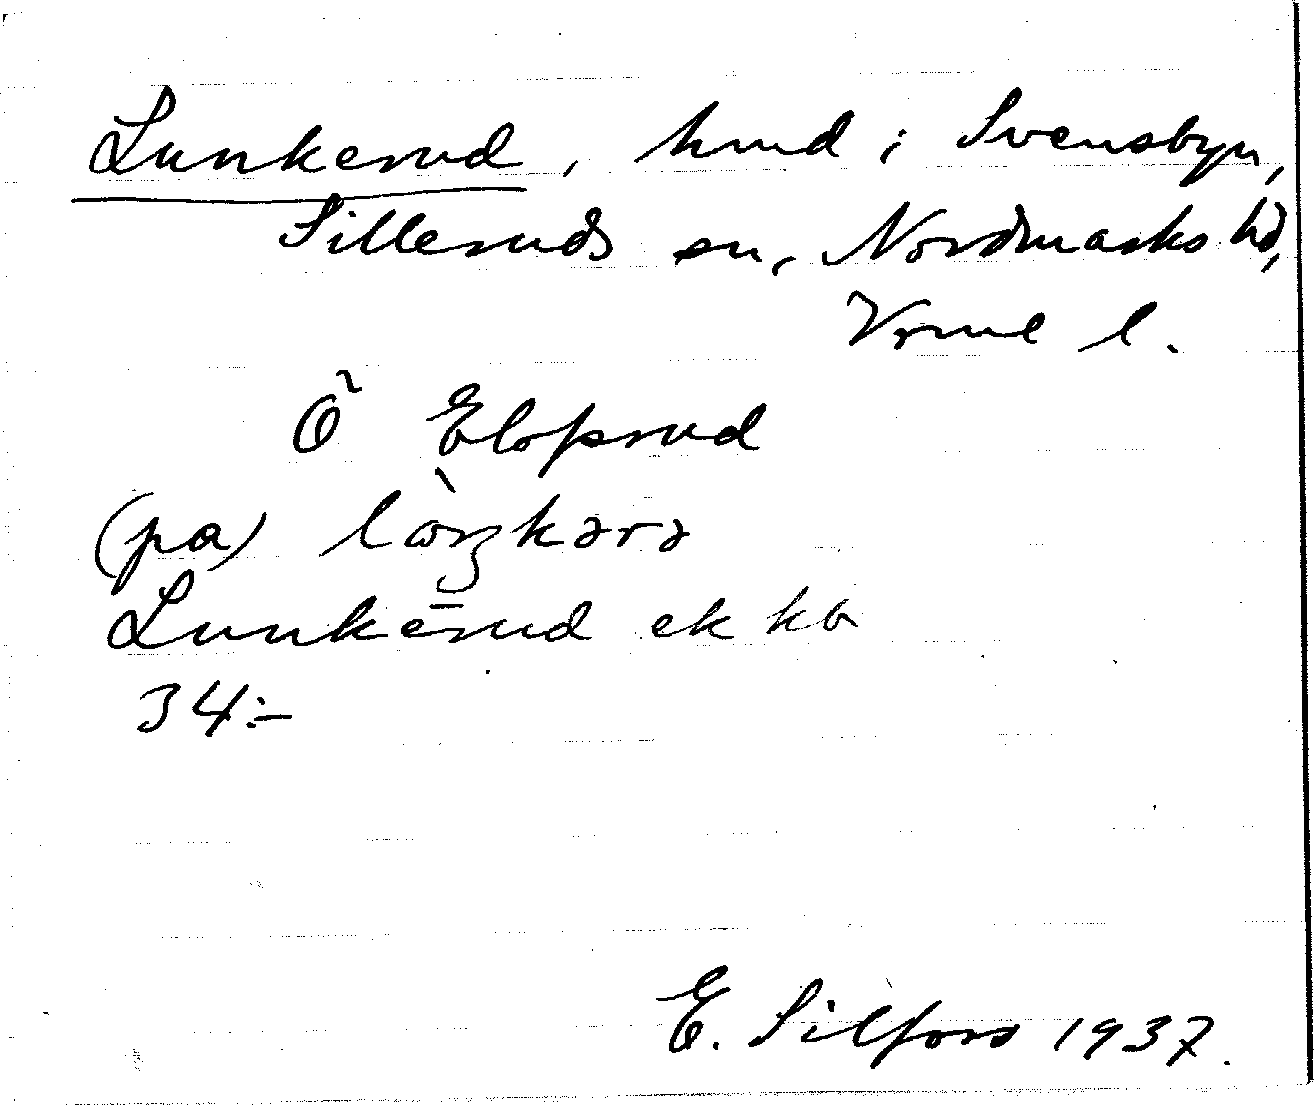 Lunkerud, hmd i Svensbyn,
Silleruds sn, Nordmarks hd,
Vrml l.
Ö Elopsrud
(pa) lɷŋkərə
Lunkerud ek ka
34:-
E. Silfors 1937.